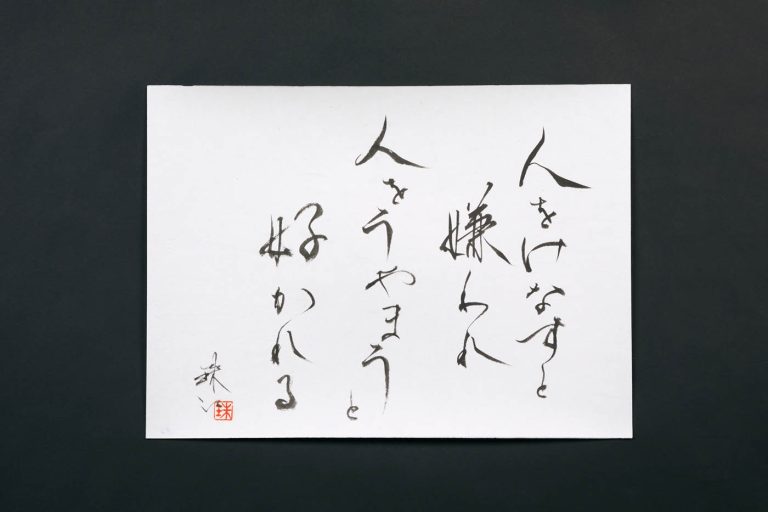 人をけなすと
嫌われ
人をうやまうと
好かれる
珠
珠